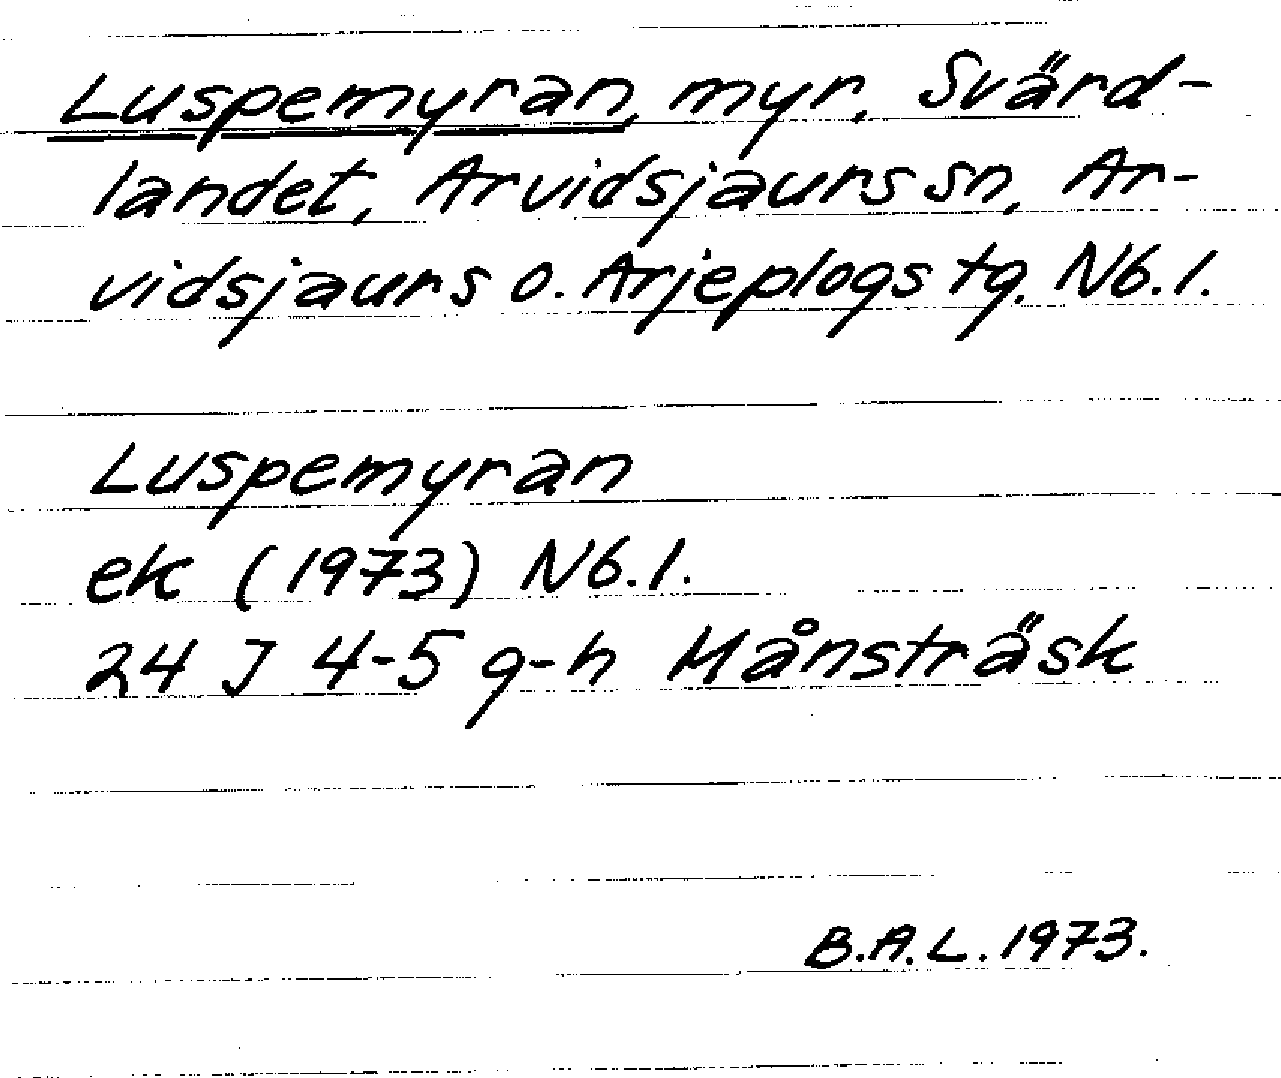 Luspemyran, myr, Svärd-
landet, Arvidsjaurs sn, Ar-
vidsjaurs o. Arjeplogs tg. Nb. l.
Luspemyran
ek (1973) Nb. l.
24 J 4-5 g-h Månsträsk
B.A.L. 1973.